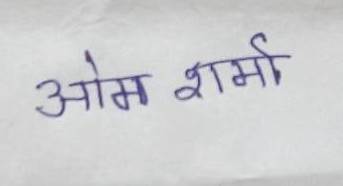 ओम शर्मा